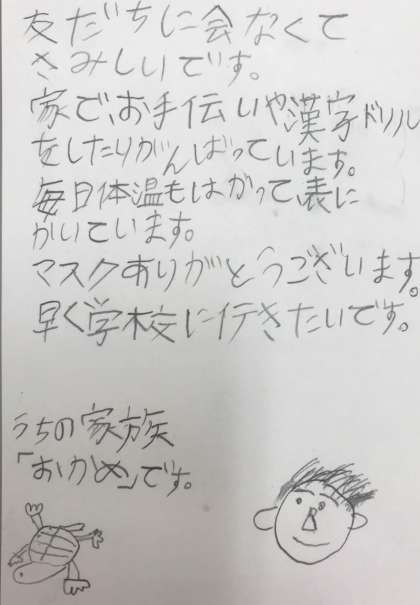 友だちに会なくて
さみしいです。
家で、お手伝いや漢字ドリル
をしたりがんばっています。
毎日体温もはかって、表に
かいています。
マスクありがとうございます。
早く学校に行きたいです。
うちの家族
「おかめ」です。